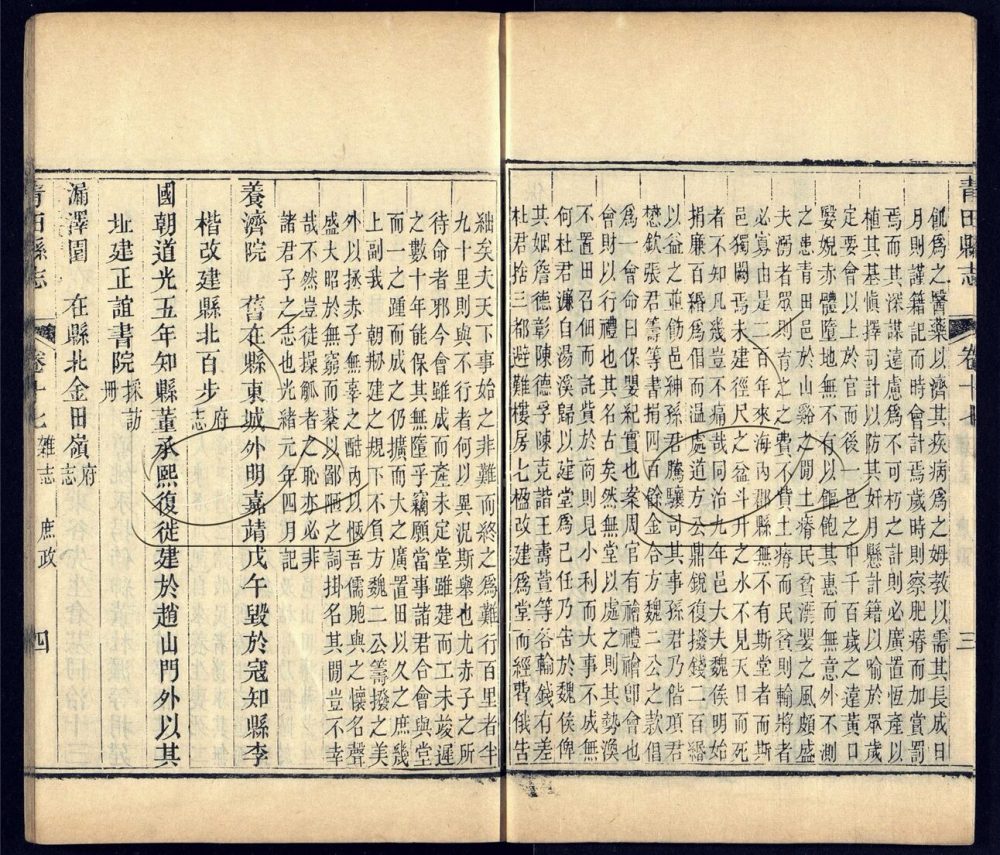 青田縣志 卷十七 三
飢爲之醫藥以濟其疾病爲之姆教以需其長成日
月則謹籍記而時會計焉歲時則察肥瘠而加賞罰
焉而其深謀遠慮爲不可朽之計則必廣置恆產以
植其基慎擇司計以防其奸月懸計籍以喻於眾歲
定要會以上於官而後一邑之中千百歲之遠黃口
嬰婗赤體墮地無不有以飫飽其惠而無意外不測
之患青田邑於山谿之間土瘠民貧溺嬰之風頗盛
夫溺者眾則育之之費不貲土瘠而民貧則輸將者
必寡由是二百年來海內郡縣無不有斯堂者而斯
邑獨闕焉未建徑尺之盆斗升之水不見天日而死
者不知凡幾豈不痛哉同治九年邑大夫魏侯明始
捐廉百緡爲倡而溫處道方公鼎銳復撥錢二百緡
以益之並飭邑紳孫君騰驤司其事孫君乃偕項君
懋欽張君籌等書捐四百餘金合方魏二公之款倡
爲一會命曰保嬰紀實也案周官有禬禮禬卽會也
會財以行禮也其名古矣然無堂以處之則其勢渙
不置田召佃而託貲於商則見小利而大事不成無
何杜君濂自湯溪歸以莚堂爲己任乃告於魏侯俾
其姻詹德彰陳德孚陳克諧王壽萱等各輸錢有差
杜君捨三都避難樓房七楹改建爲堂而經費俄告
絀矣夫天下事始之非難而終之爲難行百里者半
九十里則與不行者何以異況斯舉也尤赤子之所
待命者邪今會雖成而產未定堂雖建而工未竣遲
之數十年能保其無墮乎竊願當事諸君合會與堂
而一之踵而成之仍擴而大之廣置田以久之庶幾
上副我 朝刱建之規下不負方魏二公籌撥之美
外以拯赤子無辜之酷內以愜吾儒胞與之懷名聲
盛大昭於無窮而棻以鄙陋之詞掛名其間豈不幸
哉不然豈徒操觚者之恥亦必非
諸君子之志也光緒元年四月記
養濟院 舊在縣東城外明嘉靖戊午毀於寇知縣李
楷改建縣北百步府志
國朝道光五年知縣董承熙復徙建於趙山門外以其
址建正誼書院採訪冊
漏澤園 在縣北金田嶺府志
青田縣志 卷十七 雜志 庶政 四